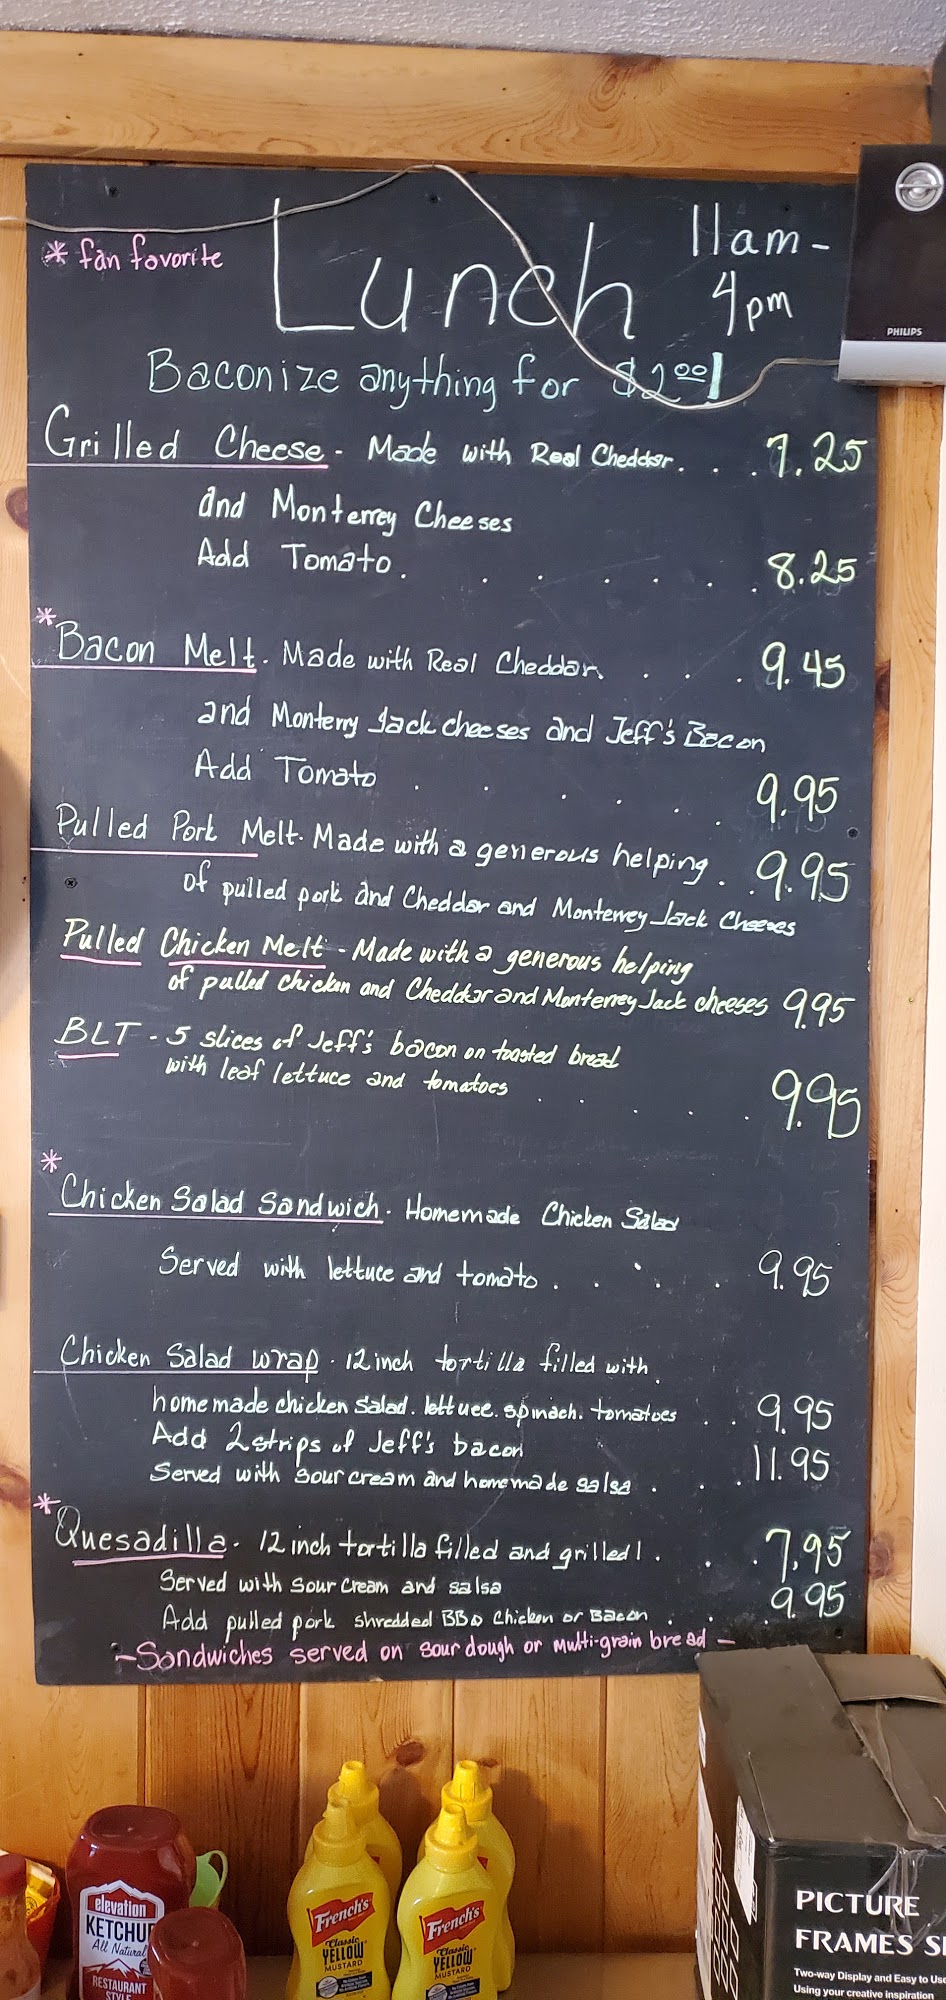 * fan favorite
Lunch
11am -
4pm
PHILIPS
Baconize anything for $2.00!
Grilled Cheese - Made with Real Cheddar. . . . 7.25
and Monterrey Cheeses
Add Tomato . . . . . . . 8.25
*
Bacon Melt. Made with Real Cheddar. . . . 9.45
and Monterry Jack cheeses and Jeff's Bacon
Add Tomato . . . . . . 9.95
Pulled Pork Melt. Made with a generous helping . . 9.95
of pulled pork and Cheddar and Monterrey Jack Cheeses
Pulled Chicken Melt - Made with a generous helping
of pulled chicken and Cheddar and Monterrey Jack cheeses 9.95
BLT - 5 slices of Jeff's bacon on toasted bread
with leaf lettuce and tomatoes . . . . . 9.95
*
Chicken Salad Sandwich. Homemade Chicken Salad
Served with lettuce and tomato . . . . . 9.95
Chicken Salad Wrap. 12 inch tortilla filled with
homemade chicken salad. lettuce. spinach. tomatoes . . 9.95
Add 2 strips of Jeff's bacon . 11.95
Served with sour cream and homemade salsa . .
*
Quesadilla. 12 inch tortilla filled and grilled! . . . 7.95
Served with sour cream and salsa 9.95
Add pulled pork shredded BBQ Chicken or Bacon . .
- Sandwiches served on sour dough or multi-grain bread -
elevation
KETCHUP
All Natural
RESTAURANT
STYLE
French's
Classic
YELLOW
MUSTARD
French's
Classic
YELLOW
MUSTARD
PICTURE
FRAMES S
Two-way Display and Easy to Use
Using your creative inspiration